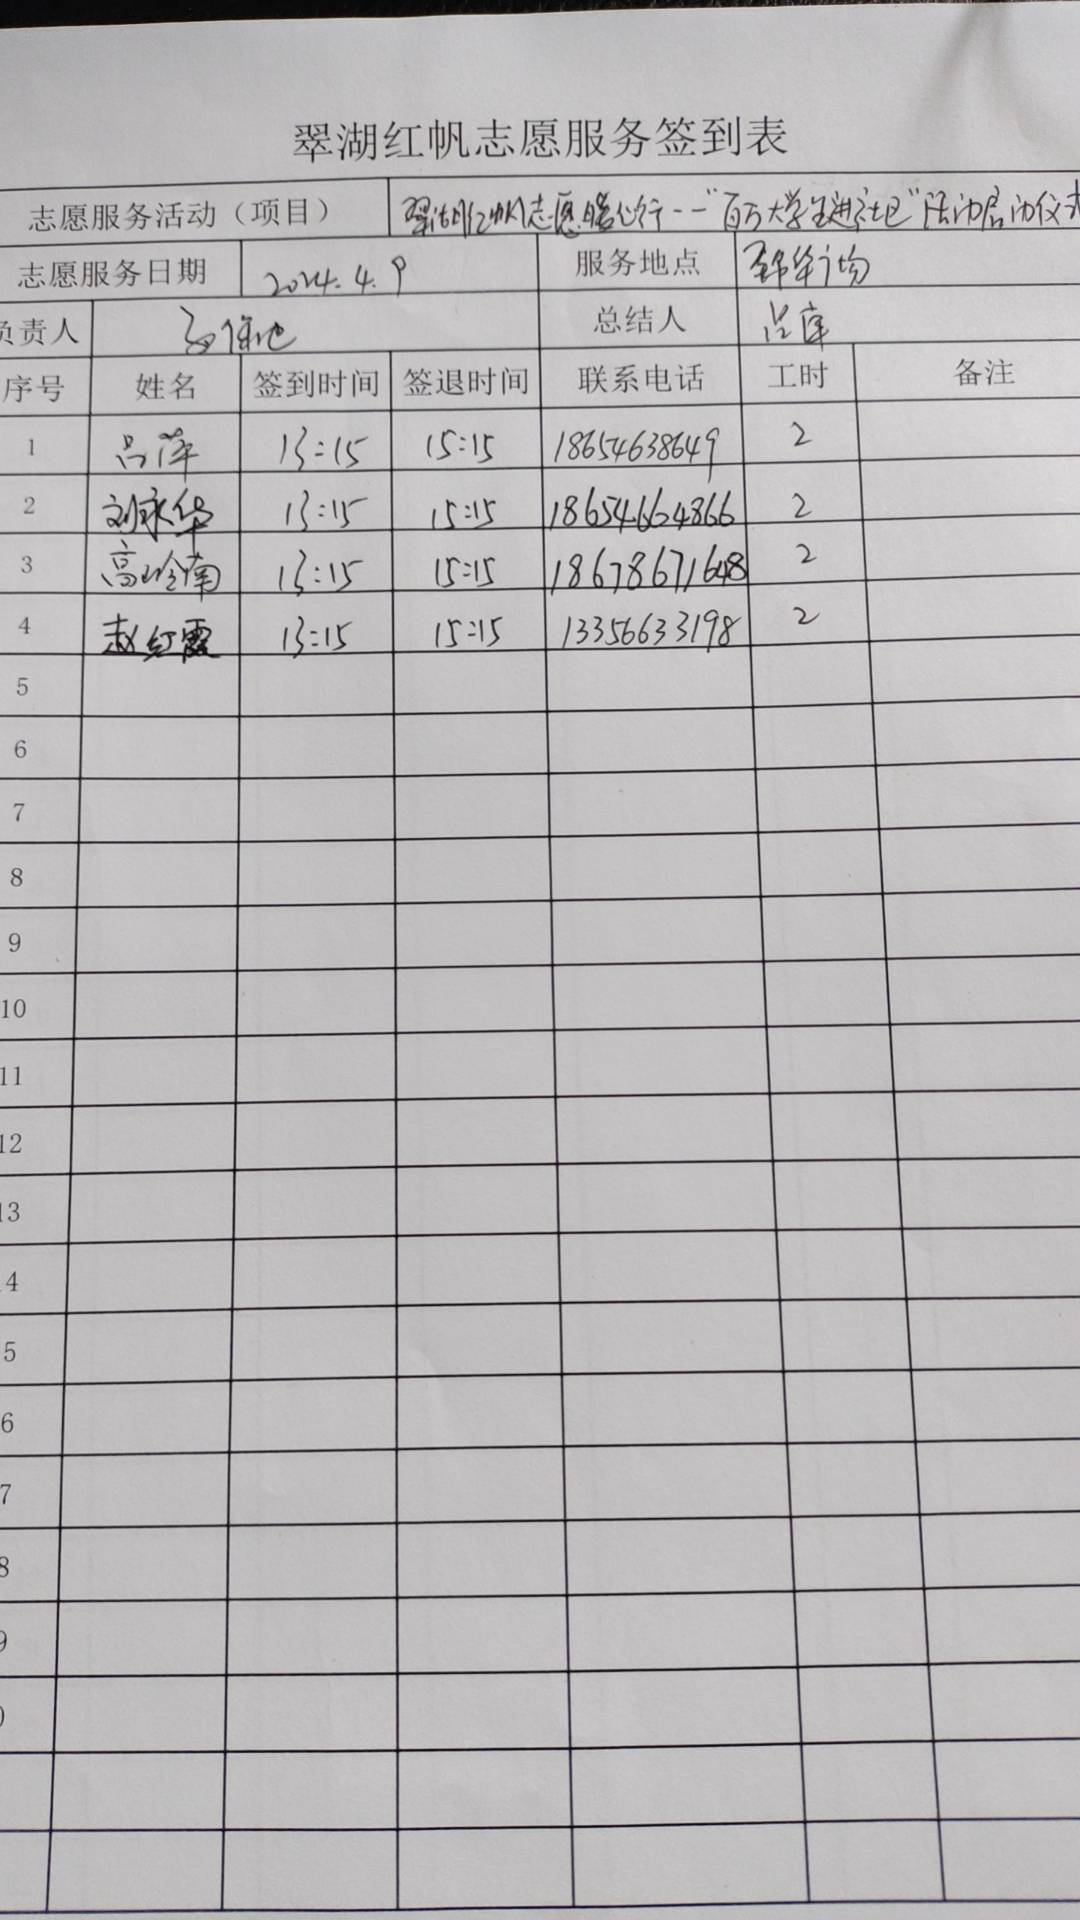 翠湖红帆志愿服务签到表
志愿服务活动（项目） 翠湖红帆志愿暖心行--"百万大学生进社区"活动启动仪式
志愿服务日期 2024.4.9 服务地点 锦华广场
负责人 总结人 吕萍
序号 姓名 签到时间 签退时间 联系电话 工时 备注
1 吕萍 13:15 15:15 18654638649 2
2 刘永华 13:15 15:15 18654664866 2
3 高岭南 13:15 15:15 18678671648 2
4 赵红霞 13:15 15:15 13356633198 2
5
6
7
8
9
10
11
12
13
4
5
6
7
8
9
0